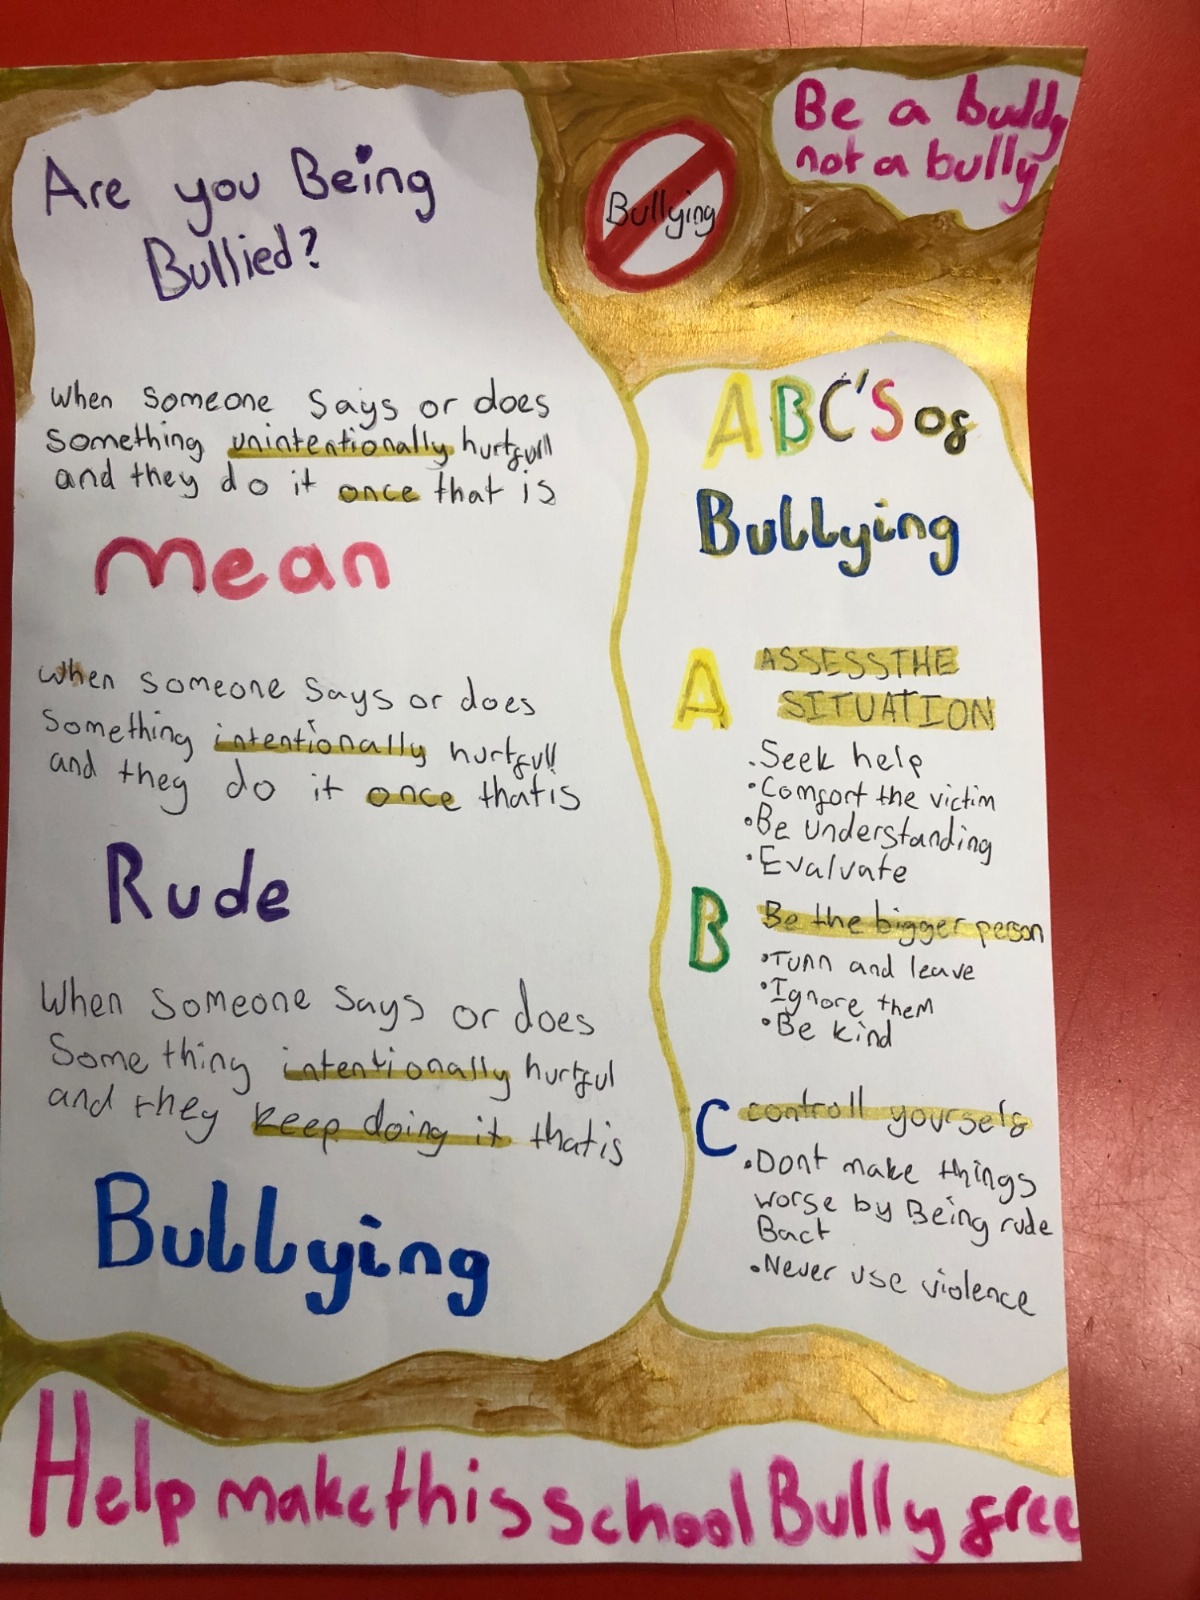 Are you Being
Bullied?
when someone says or does
something unintentionally hurtfull
and they do it once that is
mean
when someone says or does
something intentionally hurtfull
and they do it once that is
Rude
When someone says or does
Some thing intentionally hurtful
and they keep doing it that is
Bullying
Bullying
Be a buddy
not a bully
ABC'S of
Bullying
A ASSESS THE
SITUATION
• Seek help
• Comfort the victim
• Be understanding
• Evaluate
B Be the bigger person
• Turn and leave
• Ignore them
• Be kind
C controll yourself
• Dont make things
worse by Being rude
Back
• Never use violence
Help make this school Bully free